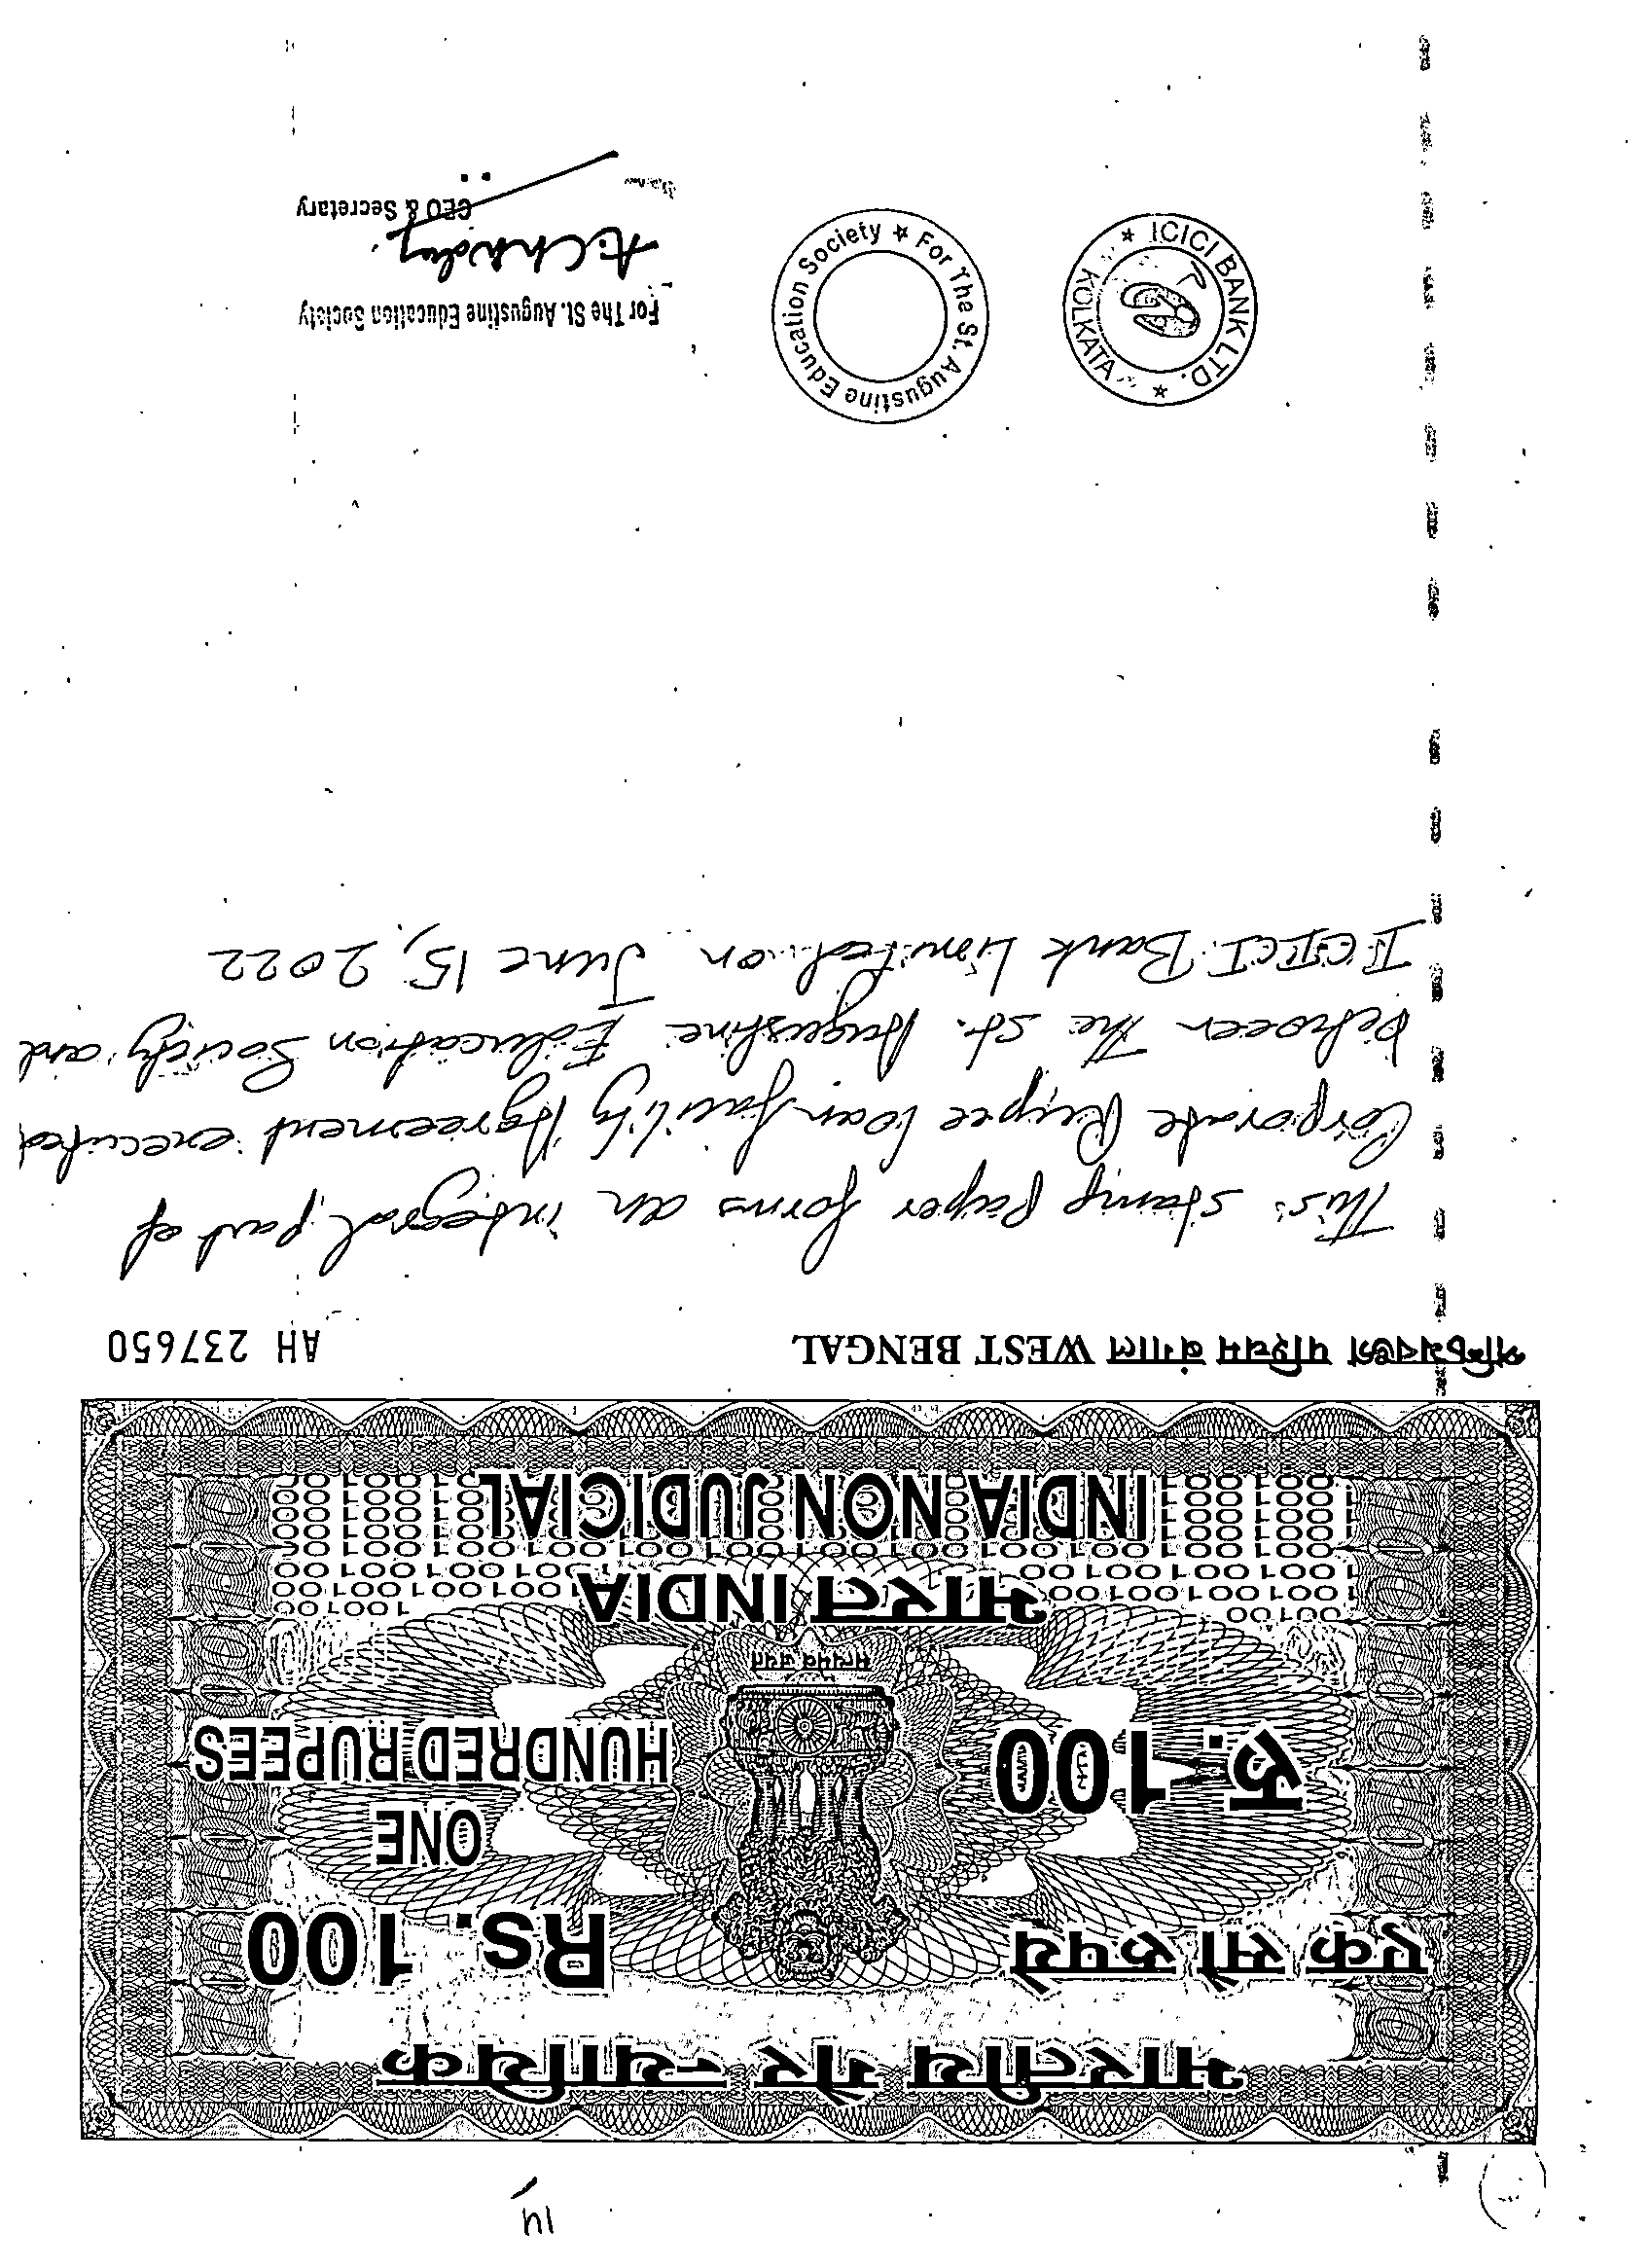 भारतीय गैर न्यायिक
एक सौ रुपये
Rs. 100
रु. 100
ONE
HUNDRED RUPEES
सत्यमेव जयते
भारत INDIA
INDIA NON JUDICIAL
পশ্চিমবঙ্গ पश्चिम बंगाल WEST BENGAL
AH 237650
This stamp paper forms an integral part of
Corporate Rupee loan facility Agreement executed
between The St. Augustine Education Society and
ICICI Bank Limited on June 15, 2022
ICICI BANK LTD. * KOLKATA *
For The St. Augustine Education Society *
For The St. Augustine Education Society
CEO & Secretary